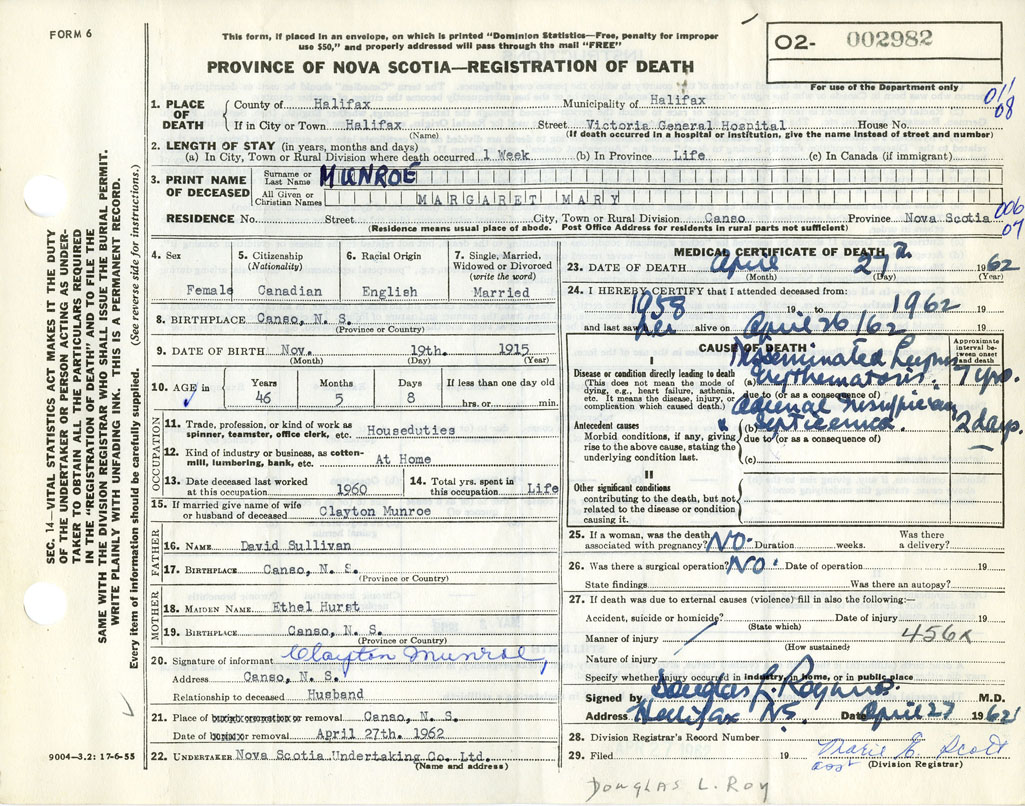 FORM 6
This form, if placed in an envelope, on which is printed "Dominion Statistics—Free, penalty for improper
use $50," and properly addressed will pass through the mail "FREE"
PROVINCE OF NOVA SCOTIA—REGISTRATION OF DEATH
O2- 002982
For use of the Department only
011
08
1. PLACE OF DEATH
County of Halifax Municipality of Halifax
If in City or Town Halifax Street Victoria General Hospital House No.
(Name) (If death occurred in a hospital or institution, give the name instead of street and number)
2. LENGTH OF STAY (in years, months and days)
(a) In City, Town or Rural Division where death occurred 1 Week (b) In Province Life (c) In Canada (if immigrant)
3. PRINT NAME OF DECEASED
Surname or Last Name MUNROE
All Given or Christian Names MARGARET MARY
RESIDENCE No. Street City, Town or Rural Division Canso Province Nova Scotia
006
07
(Residence means usual place of abode. Post Office Address for residents in rural parts not sufficient)
4. Sex
Female
5. Citizenship
(Nationality)
Canadian
6. Racial Origin
English
7. Single, Married,
Widowed or Divorced
(write the word)
Married
8. BIRTHPLACE Canso, N. S.
(Province or Country)
9. DATE OF BIRTH Nov. 19th. 1915
(Month) (Day) (Year)
10. AGE in
Years Months Days If less than one day old
46 5 8 hrs. or min.
OCCUPATION
11. Trade, profession, or kind of work as
spinner, teamster, office clerk, etc. Houseduties
12. Kind of industry or business, as cotton-
mill, lumbering, bank, etc. At Home
13. Date deceased last worked
at this occupation 1960
14. Total yrs. spent in
this occupation Life
15. If married give name of wife
or husband of deceased Clayton Munroe
FATHER
16. NAME David Sullivan
17. BIRTHPLACE Canso, N. S.
(Province or Country)
MOTHER
18. MAIDEN NAME Ethel Hurst
19. BIRTHPLACE Canso, N. S.
(Province or Country)
20. Signature of informant Clayton Munroe,
Address Canso, N. S.
Relationship to deceased Husband
21. Place of burial cremation or removal Canso, N. S.
Date of burial or removal April 27th. 1962
22. UNDERTAKER Nova Scotia Undertaking Co. Ltd.
(Name and address)
MEDICAL CERTIFICATE OF DEATH
23. DATE OF DEATH April 27th 1962
(Month) (Day) (Year)
24. I HEREBY CERTIFY that I attended deceased from:
1958 19 to 1962 19
and last saw her alive on April 26/62 19
CAUSE OF DEATH
Approximate interval between onset and death
I
Disease or condition directly leading to death
(This does not mean the mode of
dying, e.g., heart failure, asthenia,
etc. It means the disease, injury, or
complication which caused death.)
(a) Disseminated Lupus
Erythematosis. 7 yrs.
due to (or as a consequence of)
Adrenal Insufficiency
Antecedent causes
Morbid conditions, if any, giving
rise to the above cause, stating the
underlying condition last.
(b) & Septicemia. 2 days.
due to (or as a consequence of)
(c)
II
Other significant conditions
contributing to the death, but not
related to the disease or condition
causing it.
25. If a woman, was the death
associated with pregnancy? NO. Duration weeks. Was there
a delivery?
26. Was there a surgical operation? NO. Date of operation 19
State findings Was there an autopsy?
27. If death was due to external causes (violence) fill in also the following:—
Accident, suicide or homicide? Date of injury 19
(State which)
Manner of injury 456x
(How sustained)
Nature of injury
Specify whether injury occurred in industry, in home, or in public place
Signed by Douglas L. Roy M.D.
Address Halifax NS. Date April 27 1962
28. Division Registrar's Record Number
29. Filed 19 Marie E. Scott
asst (Division Registrar)
Douglas L. Roy
SEC. 14—VITAL STATISTICS ACT MAKES IT THE DUTY
OF THE UNDERTAKER OR PERSON ACTING AS UNDER-
TAKER TO OBTAIN ALL THE PARTICULARS REQUIRED
IN THE "REGISTRATION OF DEATH" AND TO FILE THE
SAME WITH THE DIVISION REGISTRAR WHO SHALL ISSUE THE BURIAL PERMIT.
WRITE PLAINLY WITH UNFADING INK. THIS IS A PERMANENT RECORD.
Every item of information should be carefully supplied. (See reverse side for instructions.)
9004—3.2: 17-6-55